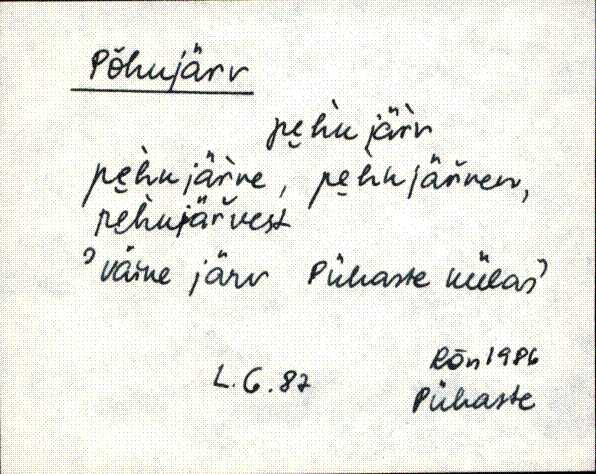 Põhujärv
pe̮h̀u jär̀v
pe̮h̀u jär̀ve, pe̮h̀u jär̆ven,
pe̮h̀ujär̆vest
'väike järv Pühaste külas'
L.G.87
Rõn 1986
Pühaste